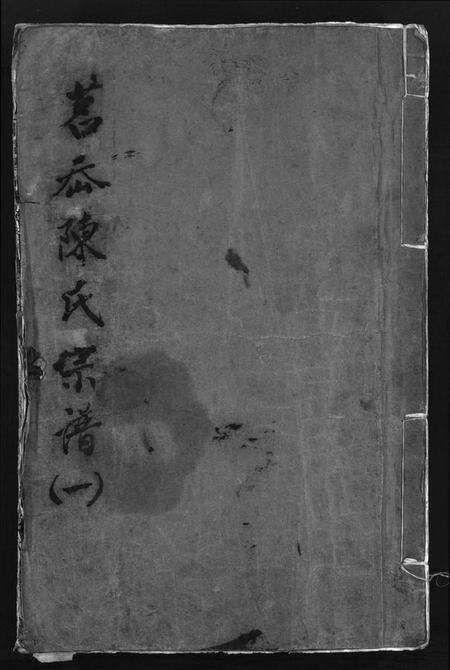 茗岙陳氏宗譜(一)